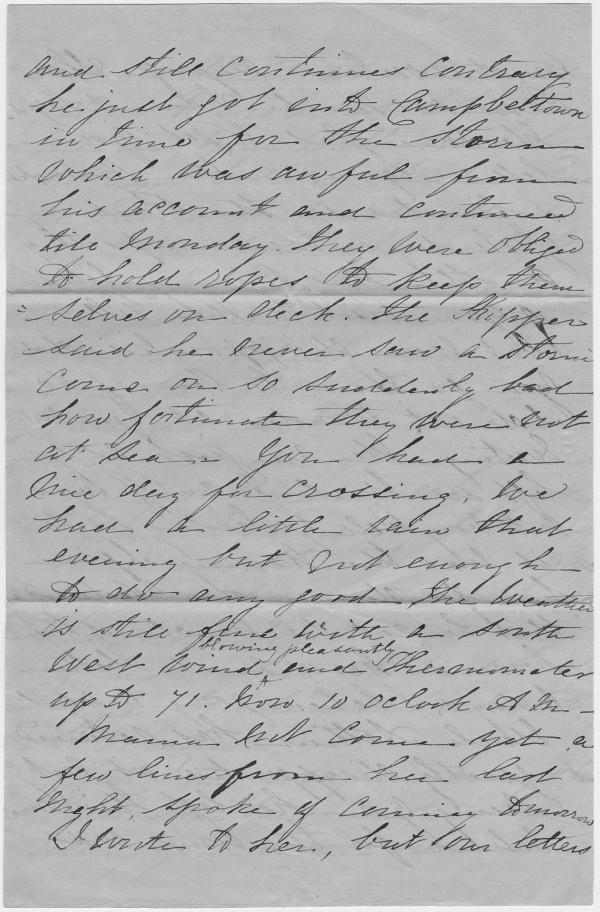 and still continues contrary
he just got into Campbeltown
in time for the Storm
which was awful from
his account and continued
till Monday. They were obliged
to hold ropes to keep them
=selves on deck. The Skipper
said he never saw a storm
come on so suddenly bad
how fortunate they were not
at sea - You had a
nice day for crossing. We
had a little rain that
evening but not enough
to do any good The weather
is still fine with a south
blowing pleasantly
West wind ^ and Thermometer
up to 71. Now 10 oclock A M -
Mama not come yet, a
few lines from her last
night, spoke of coming tomorrow
I wrote to her, but our letters